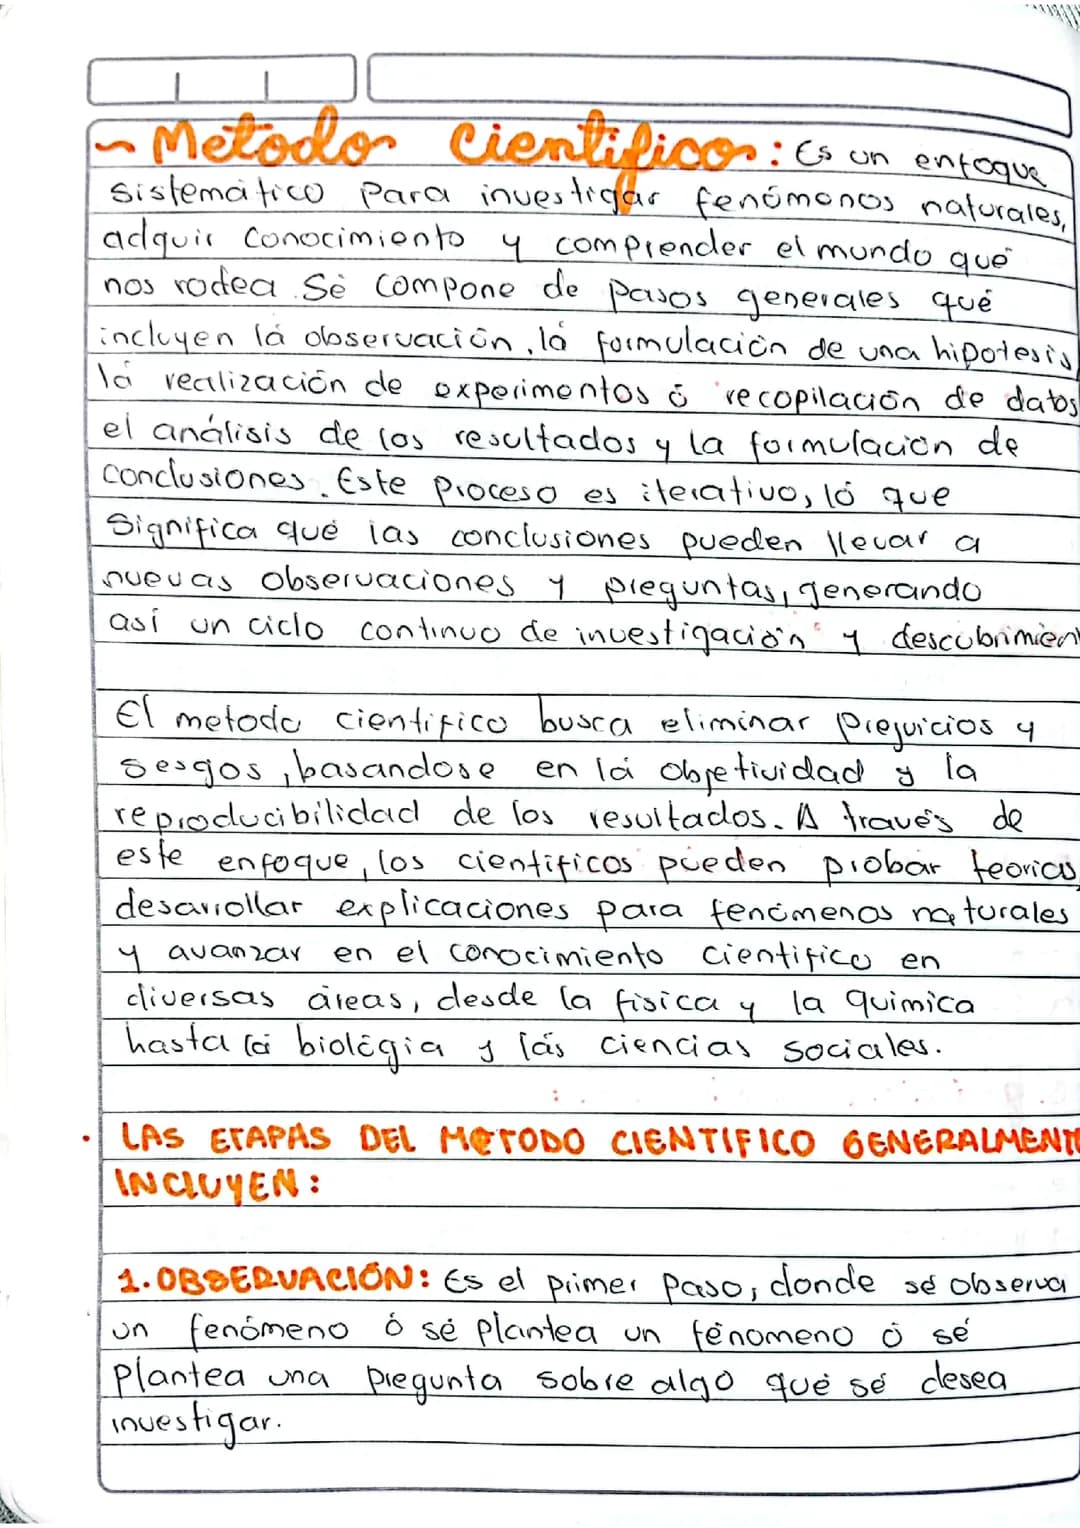 ~ Metodo cientifico: Es un enfoque
sistemático para investigar fenómenos naturales,
adquir conocimiento y comprender el mundo qué
nos rodea. Sé compone de pasos generales qué
incluyen lá observación, lá formulación de una hipotesis,
lá realización de experimentos ó recopilación de datos
el análisis de los resultados y la formulación de
conclusiones. Este proceso es iterativo, ló que
significa qué las conclusiones pueden llevar a
nuevas observaciones y preguntas, generando
así un ciclo continuo de investigación y descubrimient
El metodo cientifico busca eliminar prejuicios y
sesgos, basandose en lá objetividad y la
reproducibilidad de los resultados. A través de
este enfoque, los cientificos pueden probar teorias,
desarrollar explicaciones para fenómenos naturales
y avanzar en el conocimiento cientifico en
diversas áreas, desde la fisica y la quimica
hasta lá biológia y lás ciencias sociales.
· LAS ETAPAS DEL METODO CIENTIFICO GENERALMENTE
INCLUYEN:
1. OBSERVACIÓN: Es el primer paso, donde sé observa
un fenómeno ó sé plantea un fénomeno ó sé
plantea una pregunta sobre algo qué sé desea
investigar.